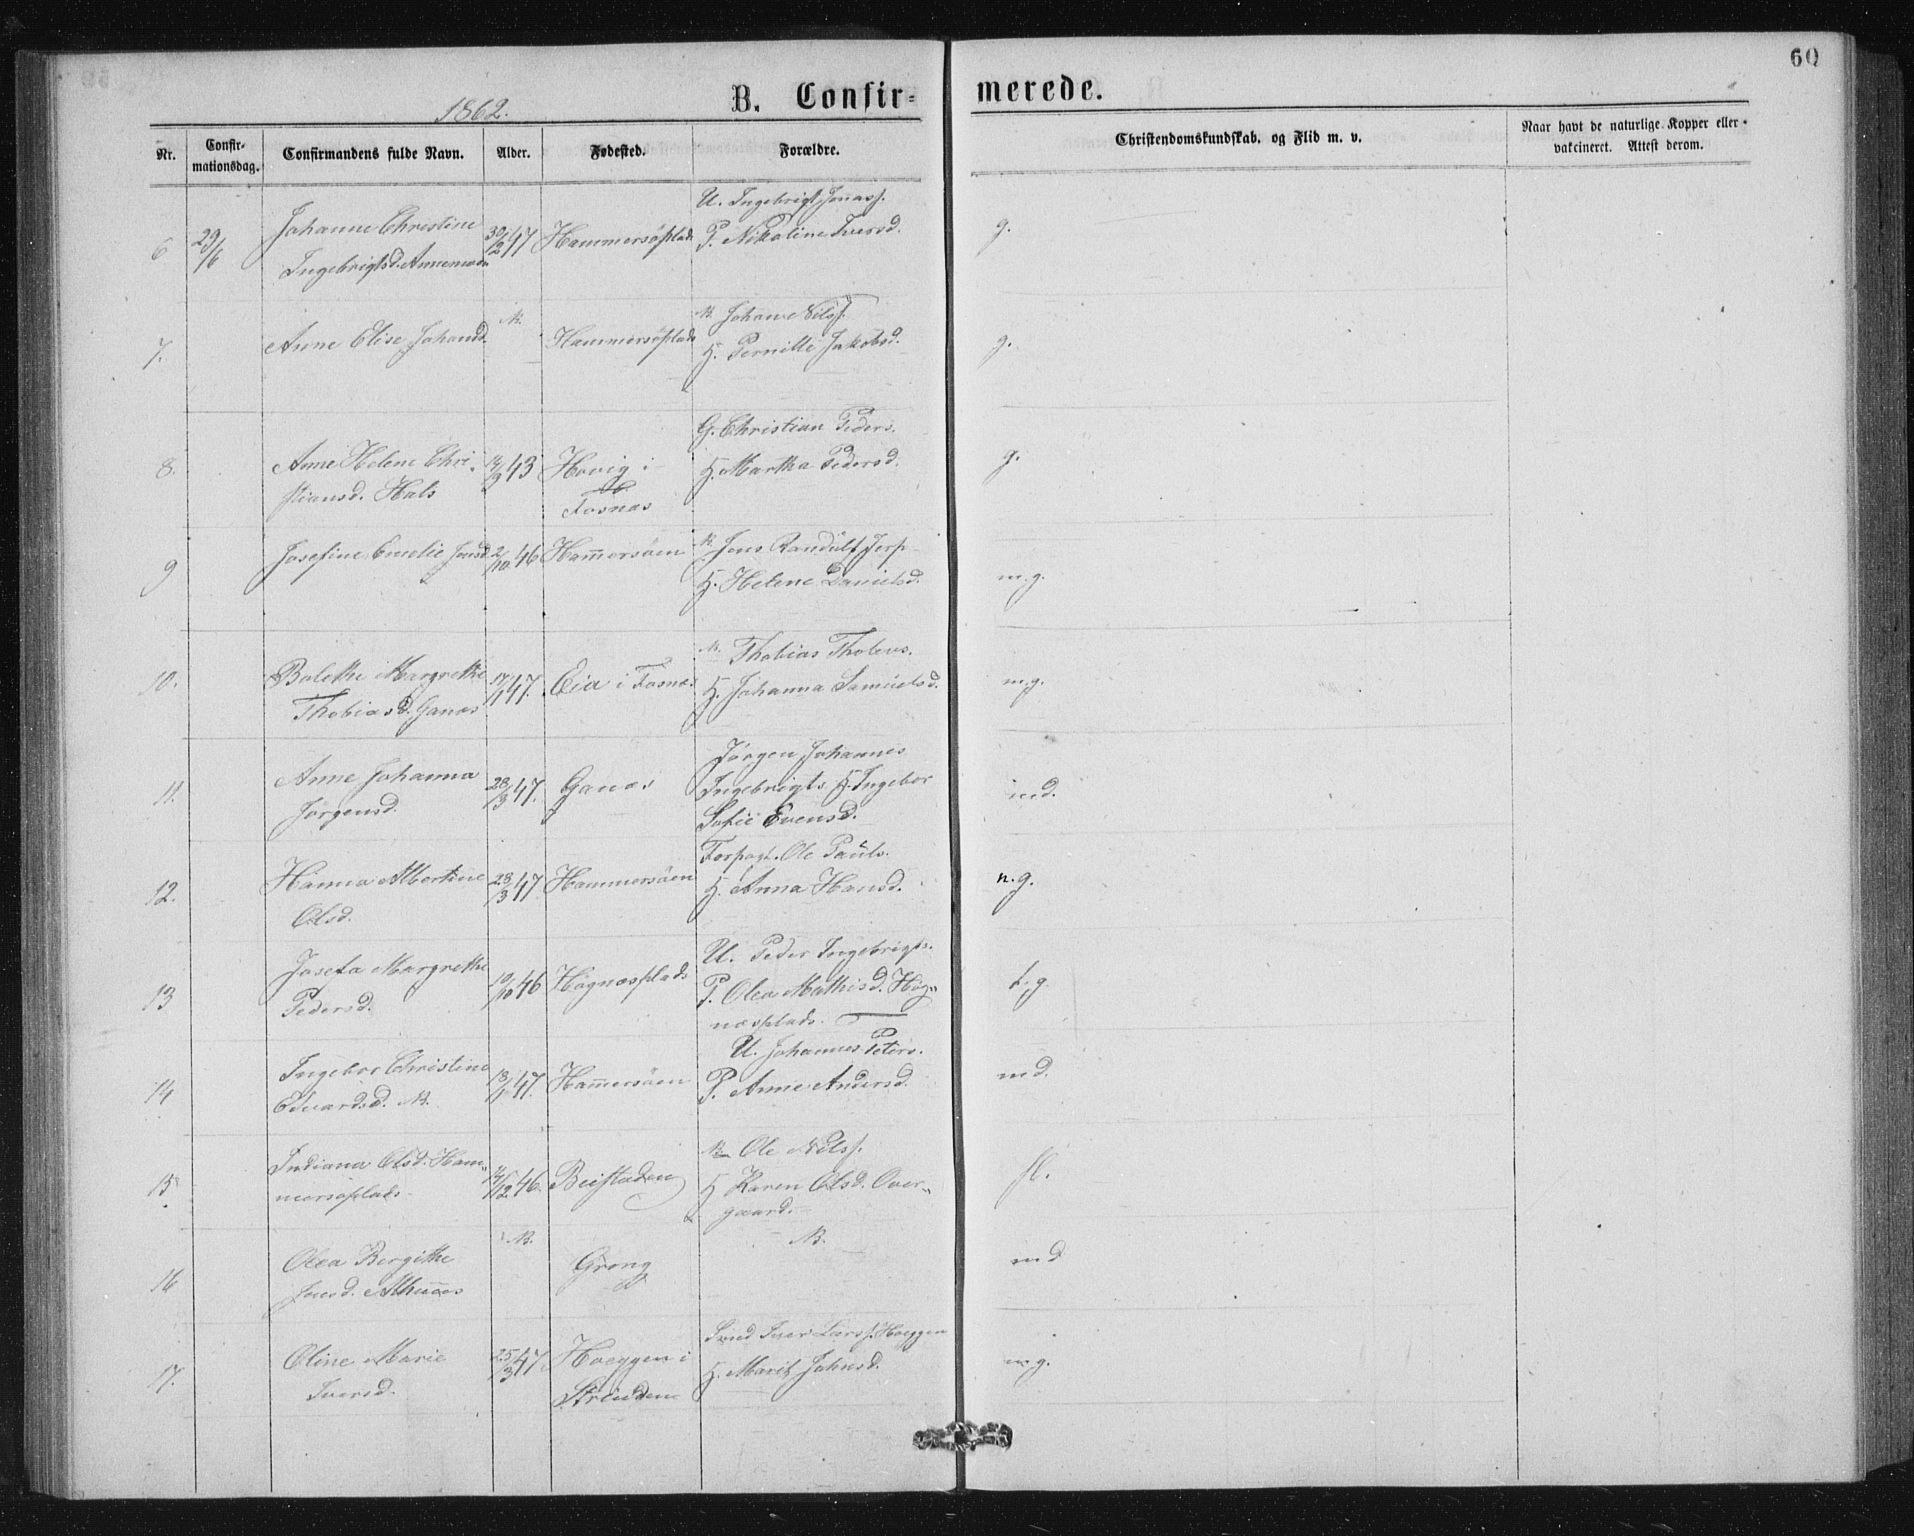 60
1862.
B. Confir-
merede.
Nr.
Confir-
mationsdag.
Confirmandens fulde Navn.
Alder.
Fødested.
Forældre.
Christendomskundskab. og Flid m. v.
Naar havt de naturlige Kopper eller
vakcineret. Attest derom.
6
29/6
Johanne Christine
Ingebrigtsd.
30/2 47
Hammersøplads
U. Ingebrigt Jonass.
P. Nikoline Iversd.
g.
7.
Anne Elise Johansd.
N.
Hammersøplads
N. Johan Nilss.
H. Pernille Jakobsd.
g.
8.
Anne Helene Chri-
stiansd. Hals
14/9 43
Hovig i
Fosnæs
G. Christian Peders.
H. Martha Pedersd.
g.
9
Josefine Emelie Jensd.
2/10 46
Ham̄ersøen
N. Jens Randulf Jesp
H. Helene Danielsd.
m.g.
10.
Bolethe Margrethe
Thobiasd. Ganæs
17/1 47.
Eia i Fosnæs
N. Thobias Tholevs.
H. Johanna Samuelsd.
m.g.
11.
Anne Johanna
Jørgensd.
28/3 47.
Ganæs
Jørgen Johannes
Ingebrigts H. Ingebor
Sofie Evensd.
md.
12.
Hanna Albertine
Olsd.
28/3 47.
Hammersøen
Forpagt. Ole Pauls.
H. Anna Hansd.
n.g.
13
Josefa Margrethe
Pedersd.
19/10 46
Høgnæsplads
U. Peder Ingebrigts.
P. Olea Mathisd. Høg-
næsplads.
t.g.
14
Ingebor Christine
Edvardsd. N.
18/1 47.
Ham̄ersøen
U. Johannes Peters.
P. Anne Andersd.
md.
15
Indiana Olsd. Ham-
mersøplads
14/12 46.
Beistaden
N. Ole Nilss.
H Karen Olsd. Over-
gaard.
fl.
16
Olea Bergithe
Jonsd.
N.
Grong
N.
md
17.
Oline Marie
Iversd.
25/3 47
Hoeggen i
Strinden
Iver Larss. Hoeggen
H. Marit Johnsd.
m g.